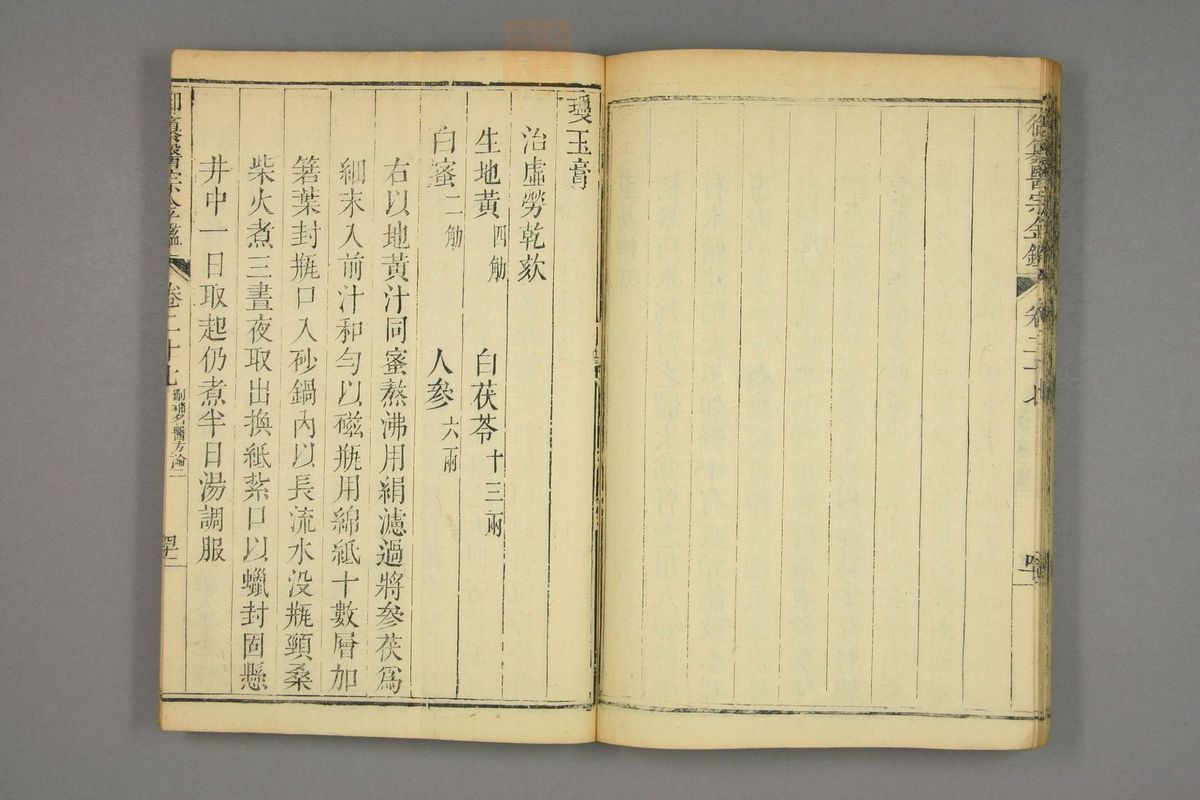 御纂醫宗金鑑
卷二十七
瓊玉膏
治虛勞乾欬
生地黃四觔 白茯苓十三兩
白蜜二觔 人參六兩
右以地黃汁同蜜熬沸用絹濾過將參茯爲
細末入前汁和勻以磁瓶用綿紙十數層加
箬葉封瓶口入砂鍋內以長流水没瓶頸桑
柴火煮三晝夜取出換紙紮口以蠟封固懸
井中一日取起仍煮半日湯調服
御纂醫宗金鑑
卷二十七
刪補名醫方論二